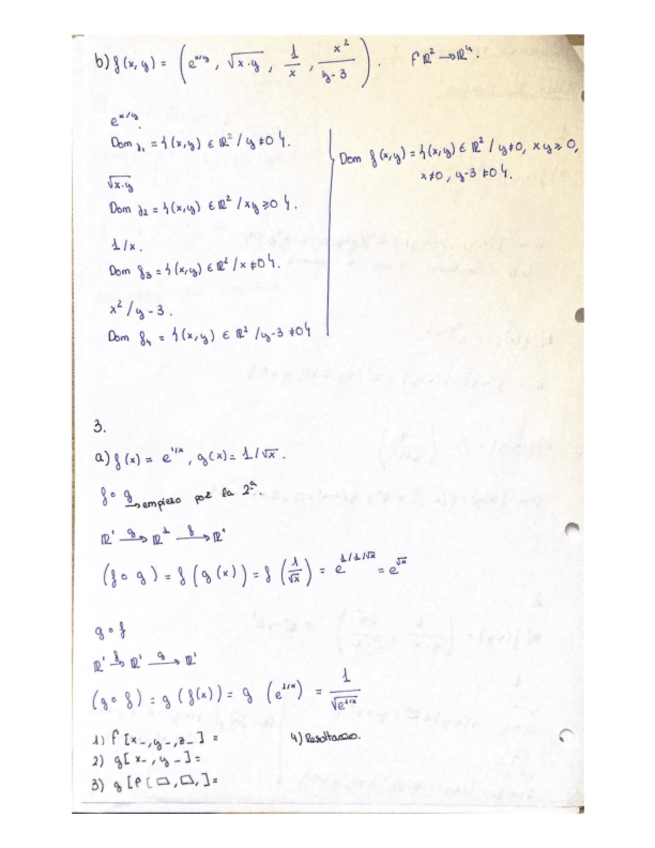 b) f(x,y) = (e^{x/y}, √x·y, 1/x, x²/y-3). f ℝ² → ℝ⁴.
e^{x/y}.
Dom f₁ = {(x,y) ∈ ℝ² / y≠0}.
√x·y
Dom f₂ = {(x,y) ∈ ℝ² / xy≥0}.
1/x.
Dom f₃ = {(x,y) ∈ ℝ² / x≠0}.
x²/y-3.
Dom f₄ = {(x,y) ∈ ℝ² / y-3≠0}
Dom f(x,y) = {(x,y) ∈ ℝ² / y≠0, xy≥0,
x≠0, y-3≠0}.
3.
a) f(x) = e^{1/x}, g(x) = 1/√x.
f∘g → empiezo por la 2ª
ℝ¹ →g ℝ¹ →f ℝ¹
(f∘g) = f(g(x)) = f(1/√x) = e^{1/1/√x} = e^{√x}
g∘f
ℝ¹ →f ℝ¹ →g ℝ¹
(g∘f) = g(f(x)) = g(e^{1/x}) = 1/√e^{1/x}
1) f[x_,y_,z_] = 4) Resultado.
2) g[x_,y_] =
3) g[f[□,□,] =